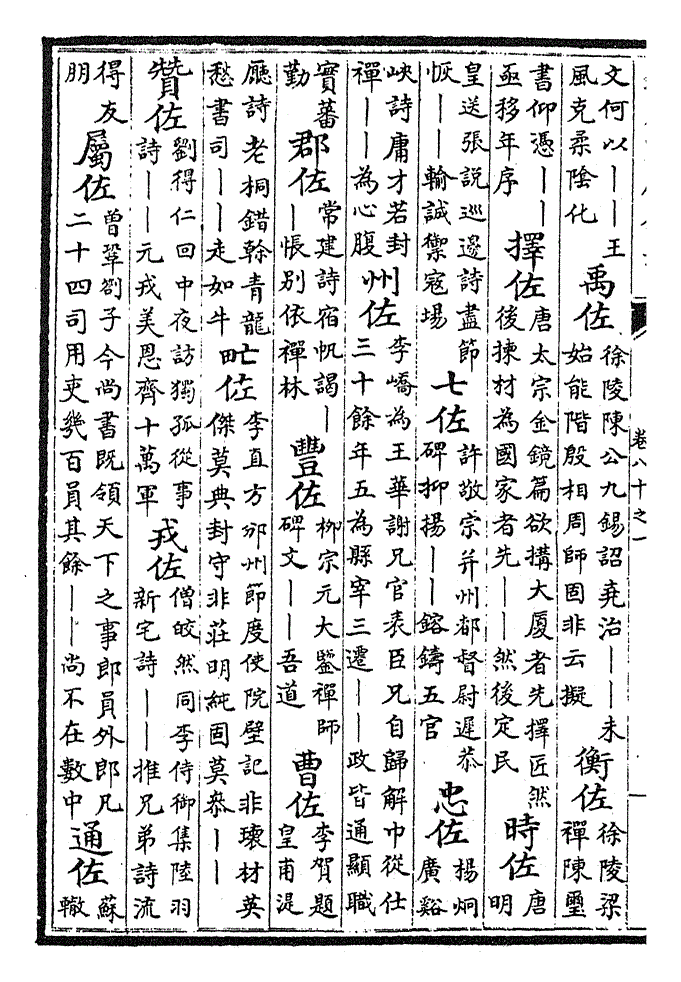 卷八十之一
一
文何以｜｜王
風克柔陰化
禹佐
徐陵陳公九錫詔堯治｜｜未
始能階殷相周師固非云擬
衡佐
徐陵梁
禪陳璽
書仰憑｜｜
亟移年序
擇佐
唐太宗金鏡篇欲搆大厦者先擇匠然
後揀材為國家者先｜｜然後定民
時佐
唐
明
皇送張説巡邊詩盡節
恢｜｜輸誠禦寇場
七佐
許敬宗并州都督尉遲恭
碑抑揚｜｜鎔鑄五官
忠佐
揚炯
廣谿
峽詩庸才若封
禪｜｜為心腹
州佐
李嶠為王華謝兄官表臣兄自歸解巾從仕
三十餘年五為縣宰三遷｜｜政皆通顯職
實蕃
勤
郡佐
常建詩宿帆謁｜
｜悵别依禪林
豐佐
柳宗元大鑒禪師
碑文｜｜吾道
曹佐
李賀題
皇甫湜
廳詩老桐錯榦青龍
愁書司｜｜走如牛
甿佐
李直方邠州節度使院壁記非瓌材英
傑莫典封守非莊明純固莫叅｜｜
贊佐
劉得仁回中夜訪獨孤從事
詩｜｜元戎美恩齊十萬軍
戎佐
僧皎然同李侍御集陸羽
新宅詩｜｜推兄弟詩流
得友
朋
屬佐
曾鞏劄子今尚書既領天下之事郎員外郎凡
二十四司用吏幾百員其餘｜｜尚不在數中
通佐
蘇
轍